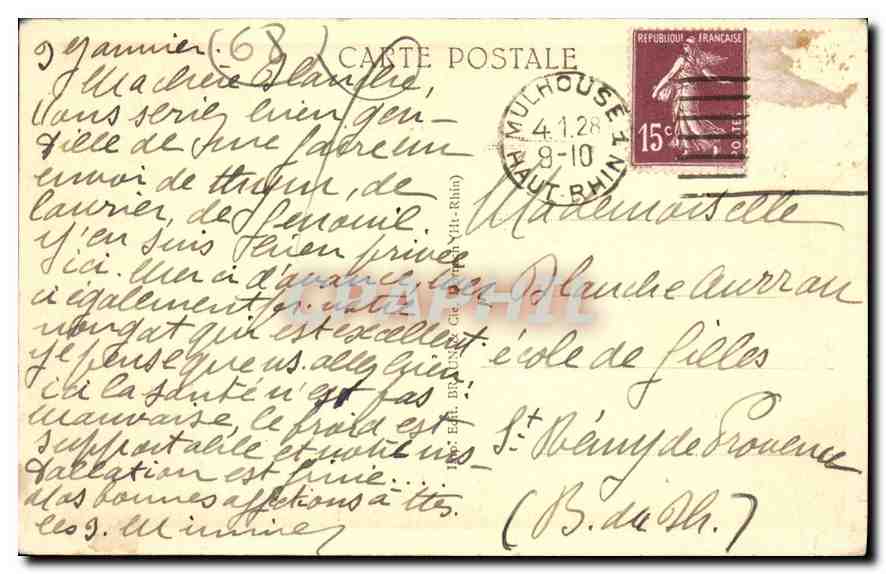 9 janvier. (68)
CARTE POSTALE
Ma chère Blanche,
Vous seriez bien gen-
tille de me faire un
envoi de thym, de
laurier, de fenouil.
J'en suis bien privée
ici. Merci d'avance, merci
également pr. votre
nougat qui est excellent.
Je pense que vs. allez bien!
ici la santé n'est pas
mauvaise, le froid est
supportable et notre ins-
tallation est finie...
Nos bonnes affections à ttes
les 3. Mimine
Imp. Edit. BRAUN & Cie, (Ht-Rhin)
REPUBLIQUE FRANÇAISE
15c
POSTES
MULHOUSE 1
4.1.28
9-10
HAUT-RHIN
Mademoiselle
Blanche Aurran
école de filles
St. Rémy de Provence
(B. du Rh.)
CRAPHIL